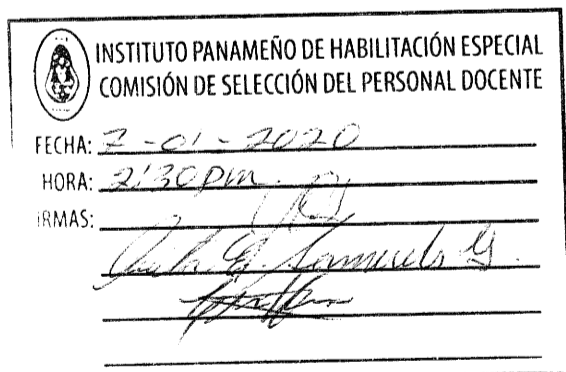 INSTITUTO PANAMEÑO DE HABILITACIÓN ESPECIAL
COMISIÓN DE SELECCIÓN DEL PERSONAL DOCENTE
FECHA: 7-01-2020
HORA: 2:30 pm.
IRMAS:
Samuels G.